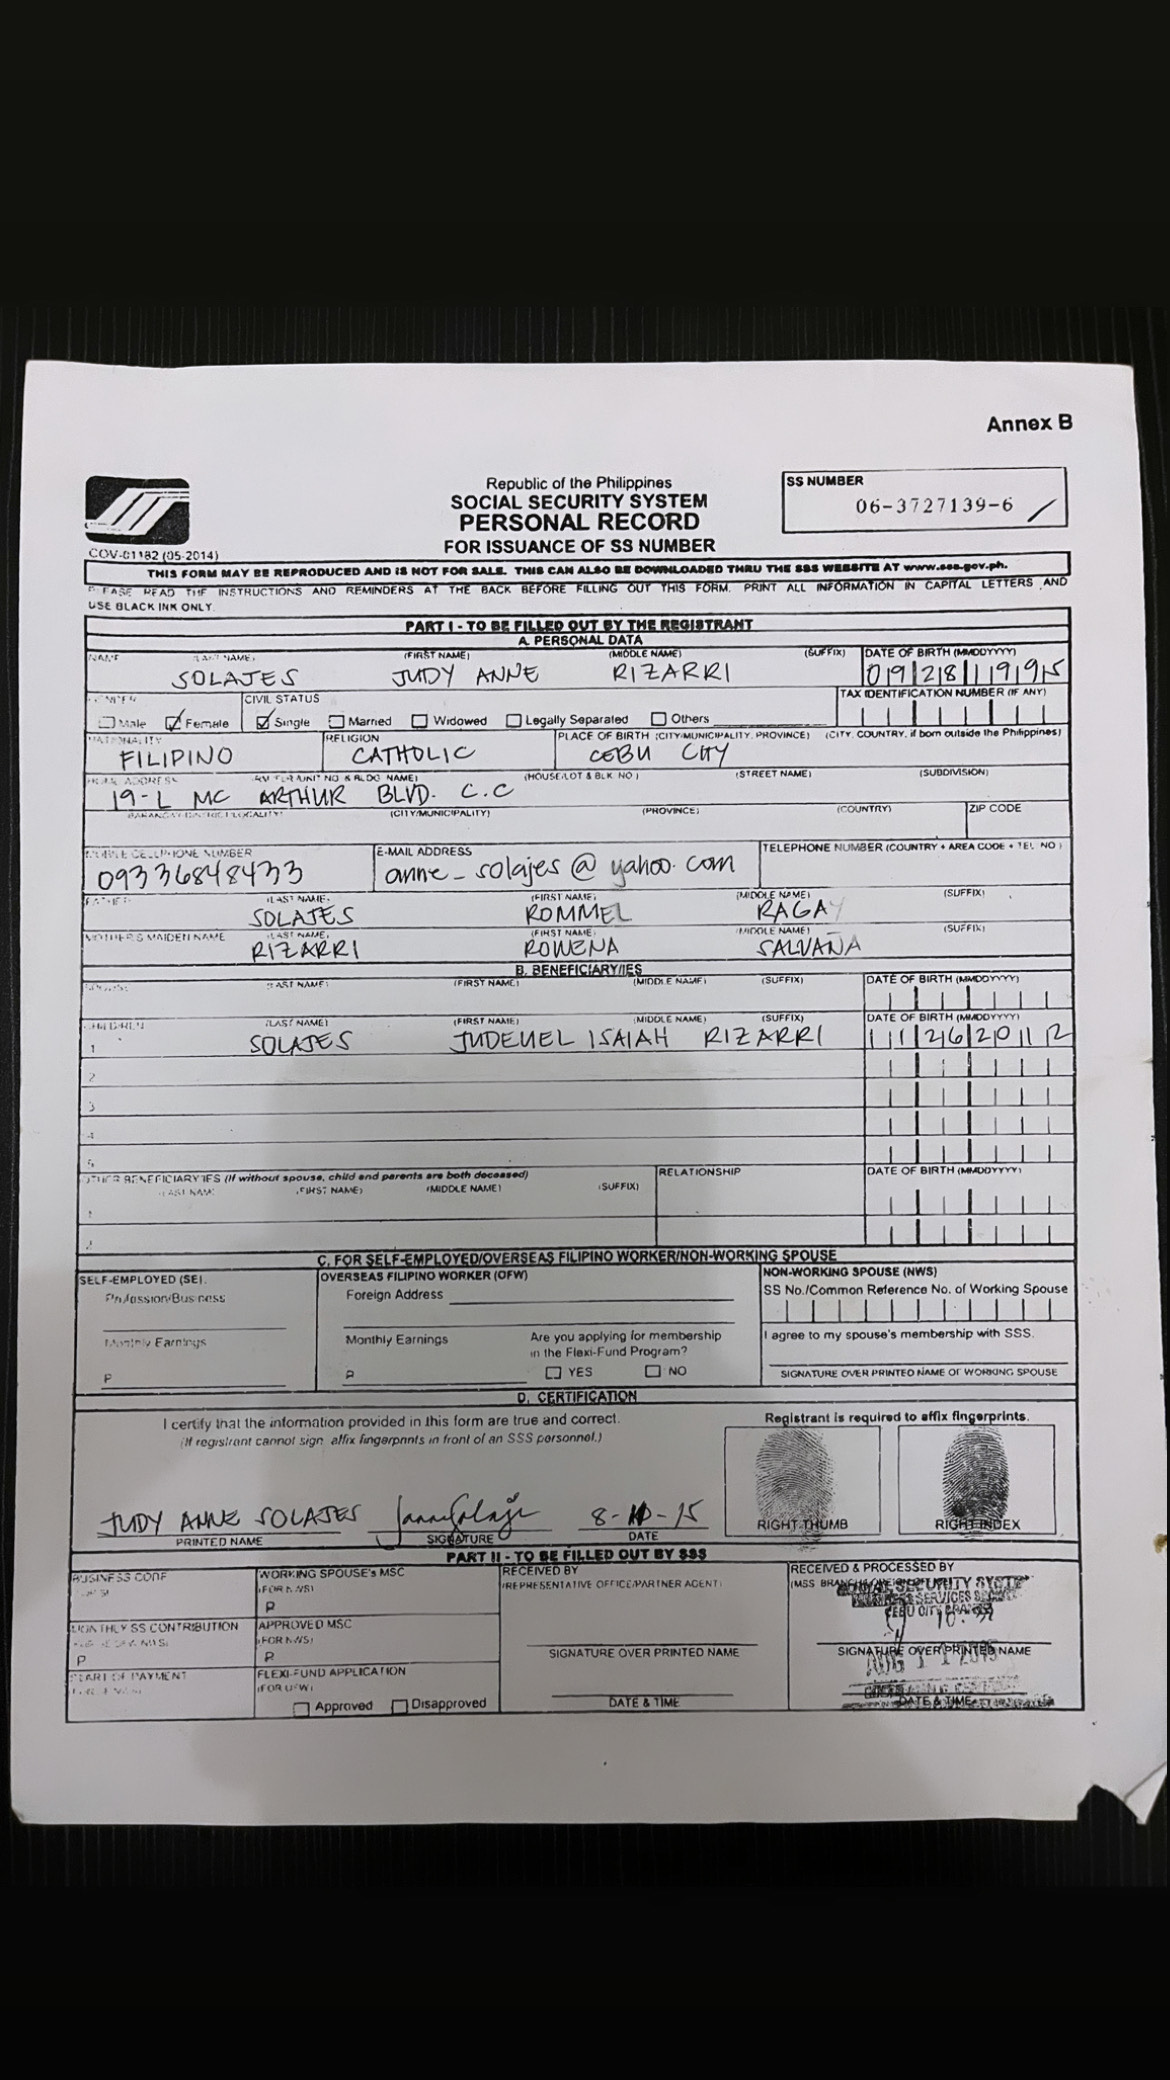 Annex B
Republic of the Philippines
SOCIAL SECURITY SYSTEM
PERSONAL RECORD
FOR ISSUANCE OF SS NUMBER
SS NUMBER
06-3727139-6
COV-01182 (05-2014)
THIS FORM MAY BE REPRODUCED AND IS NOT FOR SALE. THIS CAN ALSO BE DOWNLOADED THRU THE SSS WEBSITE AT www.sss.gov.ph.
PLEASE READ THE INSTRUCTIONS AND REMINDERS AT THE BACK BEFORE FILLING OUT THIS FORM. PRINT ALL INFORMATION IN CAPITAL LETTERS AND
USE BLACK INK ONLY.
PART I - TO BE FILLED OUT BY THE REGISTRANT
A. PERSONAL DATA
NAME (LAST NAME) (FIRST NAME) (MIDDLE NAME) (SUFFIX) DATE OF BIRTH (MMDDYYYY)
SOLAJES JUDY ANNE RIZARRI 09281995
GENDER CIVIL STATUS TAX IDENTIFICATION NUMBER (IF ANY)
Male Female Single Married Widowed Legally Separated Others
NATIONALITY RELIGION PLACE OF BIRTH (CITY/MUNICIPALITY, PROVINCE) (CITY, COUNTRY, if born outside the Philippines)
FILIPINO CATHOLIC CEBU CITY
HOME ADDRESS (RM./FLR./UNIT NO. & BLDG. NAME) (HOUSE/LOT & BLK. NO.) (STREET NAME) (SUBDIVISION)
19-L MC ARTHUR BLVD. C.C
(BARANGAY/DISTRICT/LOCALITY) (CITY/MUNICIPALITY) (PROVINCE) (COUNTRY) ZIP CODE
MOBILE/CELLPHONE NUMBER E-MAIL ADDRESS TELEPHONE NUMBER (COUNTRY + AREA CODE + TEL. NO.)
09336848433 anne_solajes@yahoo.com
FATHER (LAST NAME) (FIRST NAME) (MIDDLE NAME) (SUFFIX)
SOLAJES ROMMEL RAGAY
MOTHER'S MAIDEN NAME (LAST NAME) (FIRST NAME) (MIDDLE NAME) (SUFFIX)
RIZARRI ROWENA SALVAÑA
B. BENEFICIARY/IES
SPOUSE (LAST NAME) (FIRST NAME) (MIDDLE NAME) (SUFFIX) DATE OF BIRTH (MMDDYYYY)
CHILDREN (LAST NAME) (FIRST NAME) (MIDDLE NAME) (SUFFIX) DATE OF BIRTH (MMDDYYYY)
1 SOLAJES JUDEUEL ISAIAH RIZARRI 11262012
2
3
4
5
OTHER BENEFICIARY/IES (If without spouse, child and parents are both deceased) RELATIONSHIP DATE OF BIRTH (MMDDYYYY)
(LAST NAME) (FIRST NAME) (MIDDLE NAME) (SUFFIX)
1
2
C. FOR SELF-EMPLOYED/OVERSEAS FILIPINO WORKER/NON-WORKING SPOUSE
SELF-EMPLOYED (SE) OVERSEAS FILIPINO WORKER (OFW) NON-WORKING SPOUSE (NWS)
Profession/Business Foreign Address SS No./Common Reference No. of Working Spouse
Monthly Earnings Monthly Earnings Are you applying for membership I agree to my spouse's membership with SSS.
in the Flexi-Fund Program?
P P YES NO SIGNATURE OVER PRINTED NAME OF WORKING SPOUSE
D. CERTIFICATION
I certify that the information provided in this form are true and correct. Registrant is required to affix fingerprints.
(If registrant cannot sign, affix fingerprints in front of an SSS personnel.)
JUDY ANNE SOLAJES 8-10-15
PRINTED NAME SIGNATURE DATE RIGHT THUMB RIGHT INDEX
PART II - TO BE FILLED OUT BY SSS
BUSINESS CODE WORKING SPOUSE's MSC RECEIVED BY RECEIVED & PROCESSED BY
(FOR NWS) (REPRESENTATIVE OFFICE/PARTNER AGENT) (MSS
P
SOCIAL SECURITY SYSTEM
CEBU CITY BRANCH
MONTHLY SS CONTRIBUTION APPROVED MSC
(FOR NWS) SIGNATURE OVER PRINTED NAME SIGNATURE OVER PRINTED NAME
P P
AUG 11 2015
START OF PAYMENT FLEXI-FUND APPLICATION
(FOR OFW)
Approved Disapproved DATE & TIME DATE & TIME